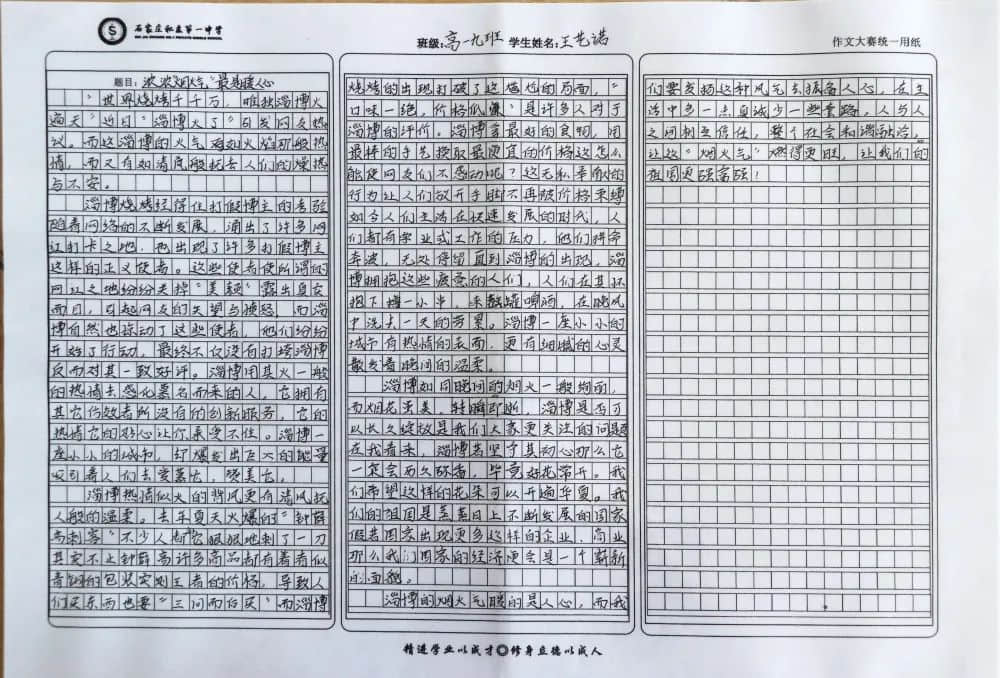 石家庄私立第一中学
班级:高一九班 学生姓名:王艺诺
作文大赛统一用纸
题目:浓浓“烟火气”最是暖人心
“世界烧烤千千万,唯独淄博火
遍天”近日“淄博火了”引发网友热
议。而这淄博的火气宛如火焰那般热
情,而又有如清风般抚去人们的燥热
与不安。
淄博烧烤经得住打假博主的考验
随着网络的不断发展,涌出了许多网
红打卡之地,也出现了许多打假博主
这样的正义使者。这些使者使所谓的
网红之地纷纷丢掉“美颜”露出真实
面目,引起网友的失望与愤怒,而淄
博自然也惊动了这些使者,他们纷纷
开始了行动,最终不仅没有打垮淄博
反而对其一致好评。淄博用其火一般
的热情去感化慕名而来的人。它拥有
其它仿效者所没有的创新服务,它的
热情它的好心让你承受不住。淄博一
座小小的城市,却爆发出巨大的能量
吸引着人们去爱慕它,赞美它。
淄博热情似火的背风更有清风抚
人般的温柔。去年夏天火爆的“钟薛
高刺客”不少人都它狠狠地刺了一刀
其实不止钟薛高许多商品都有着看似
青铜的包装实则王者的价格,导致人
们买东西也要“三问而后买”而淄博
烧烤的出现打破了这尴尬的局面,“
口味一绝,价格低廉”是许多人对于
淄博的评价。淄博拿最好的食物,用
最棒的手艺换取最便宜的价格这怎么
能使网友们不感动呢?这无私奉献的
行为让人们放开手脚不再被价格束缚
如今人们生活在快速发展的时代,人
们都有学业或工作的压力,他们拼命
奔波,无处停留直到淄博的出现,淄
博拥抱这些疲惫的人们,人们在其怀
抱下撸一小串,来罐啤酒,在晚风
中洗去一天的劳累。淄博一座小小的
城市有热情的表面,更有细腻的心灵
散发着晚间的温柔。
淄博如同晚间的烟火一般绚丽,
而烟花虽美,转瞬即断,淄博是否可
以长久绽放是我们大家更关注的问题
在我看来,淄博若坚守其初心那么它
一定会历久弥香,毕竟好花常开。我
们希望这样的花朵可以开遍华夏。我
们的祖国是蒸蒸日上不断发展的国家
假若国家出现更多这样的企业、商业
那么我们国家的经济便会是一个崭新
的面貌。
淄博的烟火气暖的是人心,而我
们要发扬这种风气去振奋人心,在生
活中多一点真诚少一些套路,人与人
之间相互信任,整个社会和谐融洽,
让这“烟火气”燃得更旺,让我们的
祖国更强富强!
精进学业以成才 修身立德以成人